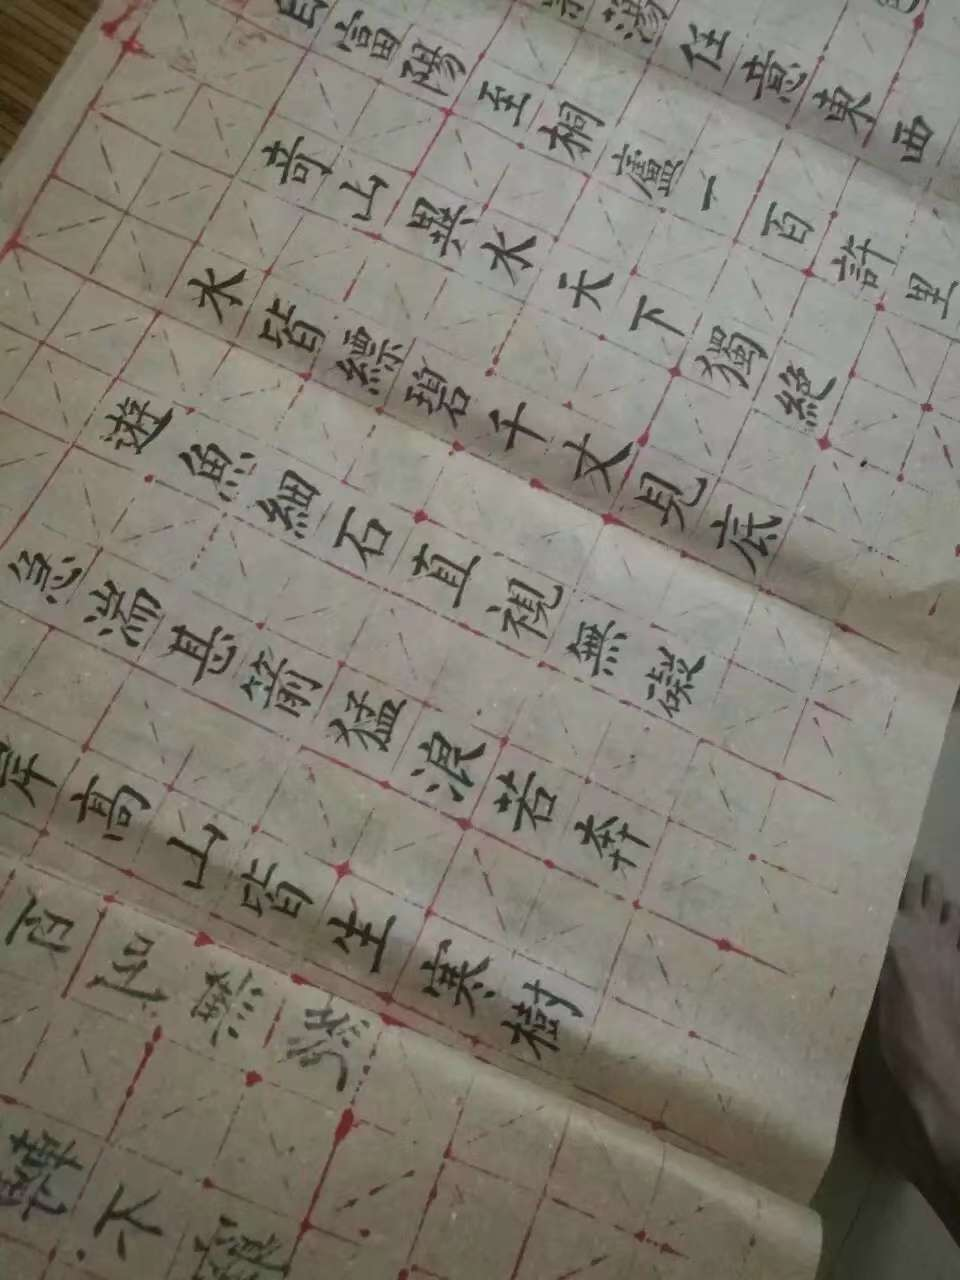 蕩任意東西
自富陽至桐廬一百許里
奇山異水天下獨絕
水皆縹碧千丈見底
遊魚細石直視無礙
急湍甚箭猛浪若奔
岸高山皆生寒樹
不